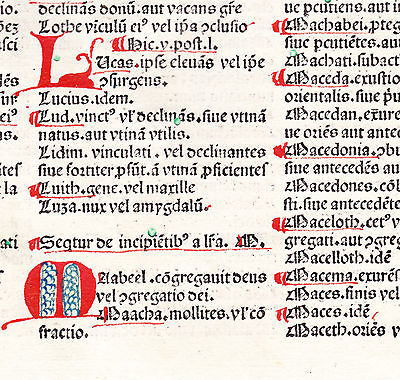 declinãs donũ. aut vacans gře
Lothe viculũ ei⁹ vel ip̃a ꝓclusio
Hic. y. post. l.
LUcas. ip̃e cleuãs vel ip̃e
ↄsurgens.
Lucius. idem.
Lud. vinct⁹ vl̓ declinãs. siue vtinã
natus. aut vtinã vtilis.
Lidim. vinculati. vel declinantes
siue fortiter. ꝓsũt. ã vtinã ꝓficientes
Luith. gene. vel maxille
Luza. nux vel amygdalũ.
Seqtur de incipiẽtib⁹ a lřa. M.
MAabeel. cõgregauit deus
vel ↄgregatio dei.
Maacha. mollites. vl̓ cõ
fractio.
ue pcutiens. aut in
Machabei. ꝓteg
siue pcutiẽtes. aut
achati. subact
Maceda. exustio
orientalis. siue p̃ui
Macedan. exure
ue oriẽs aut ante
Macedonia. ꝓbu
siue antecedẽs au
Macedones. cõl
sti. siue antecedẽt
Maceloth. cet⁹ v
gregati. aut ↄgreg
Macelloth. idẽ
Macema. exurẽs
Maces. finis vel
Maces. idẽ
Maceth. oriẽs v